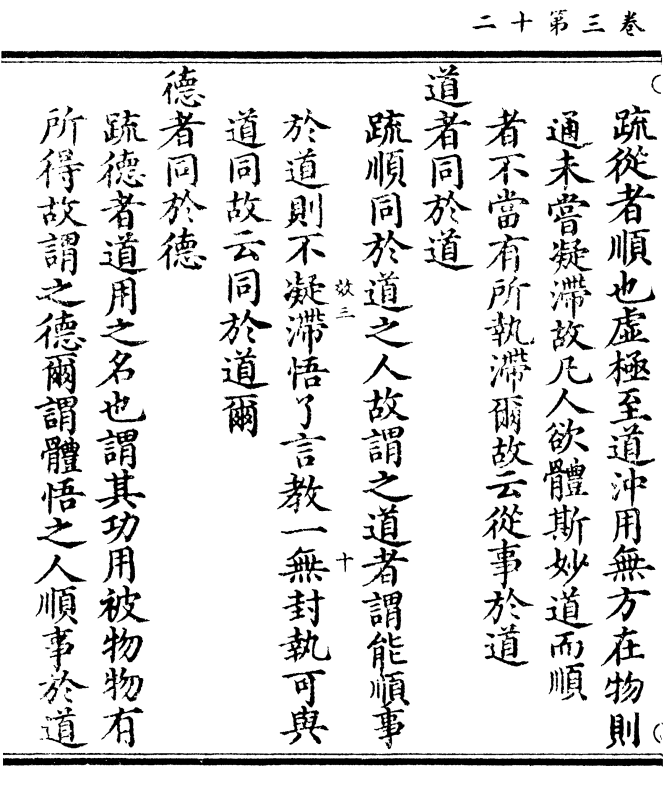 卷三第十二
疏從者順也虛極至道沖用無方在物則
通未嘗凝滯故凡人欲體斯妙道而順
者不當有所執滯爾故云從事於道
道者同於道
疏順同於道之人故謂之道者謂能順事
效三
十
於道則不凝滯悟了言教一無封執可與
道同故云同於道爾
德者同於德
疏德者道用之名也謂其功用被物物有
所得故謂之德爾謂體悟之人順事於道